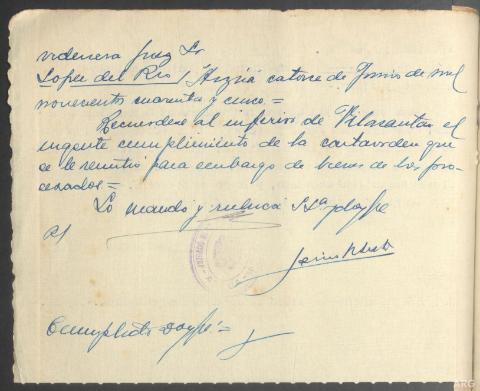 videncia Juez Sr
Lopez del Rio / Arzúa catorce de Junio de mil
novecientos cuarenta y cinco.=
Recuerdese al inferior de Vilasantar el
urgente cumplimiento de la cartaorden que
se le remitió para embargo de bienes de los pro-
cesados=
Lo mandó y rubrica SSª doy fe
Cumplida doy fe=
ARG